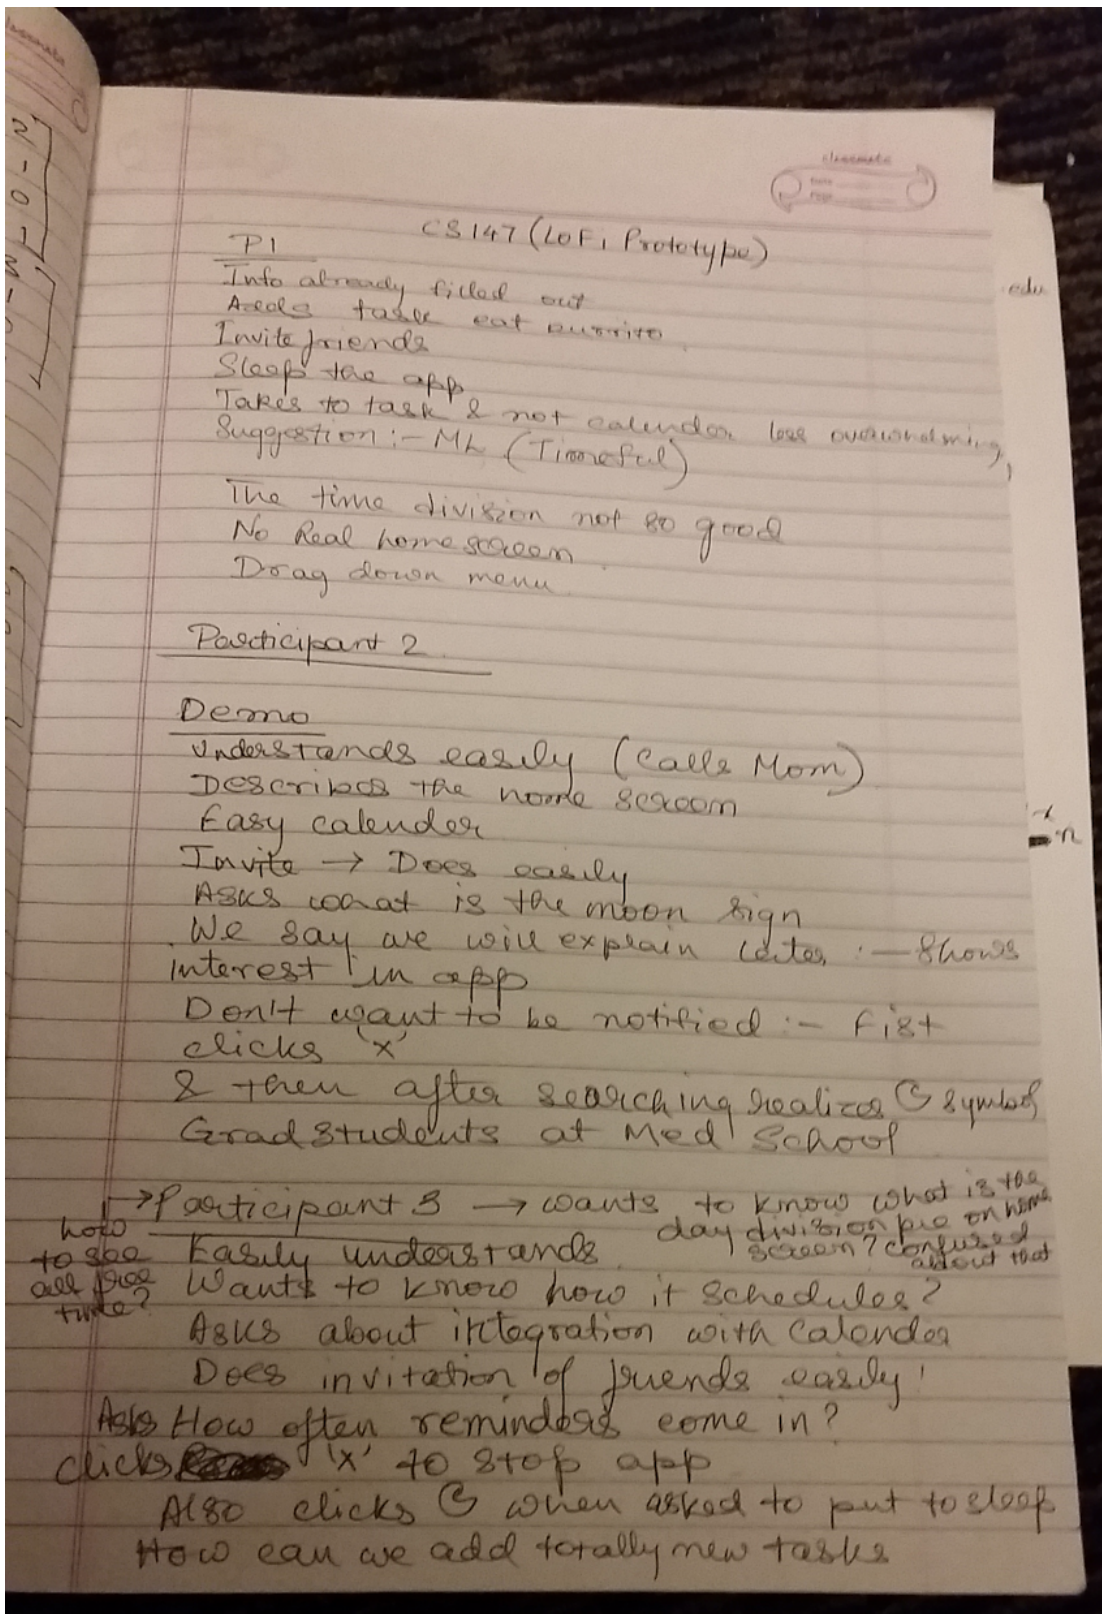 classmate
Date
Page
CS147 (LoFi Prototype)
P1
Info already filled out
Adds task eat burrito
Invite friends
Sleep the app
Takes to task & not calender less overwhelming,
Suggestion :- ML (Timeful)
The time division not so good
No Real homescreen.
Drag down menu
Participant 2
Demo
Understands easily (Calls Mom)
Describes the home screen
Easy calender
Invite → Does easily
Asks what is the moon sign
We say we will explain later :- Shows
interest in app
Don't want to be notified :- Fist
clicks 'x'
& then after searching realizes ☾ symbol
Grad students at Med School
→ Participant 3 → wants to know what is the
day division pie on home
screen? confused
about that
how
to see
all free
time?
Easily understands
Wants to know how it schedules?
Asks about integration with Calender
Does invitation of friends easily
Asks How often reminders come in?
clicks 'x' to stop app
Also clicks ☾ when asked to put to sleep
How can we add totally new tasks
edu